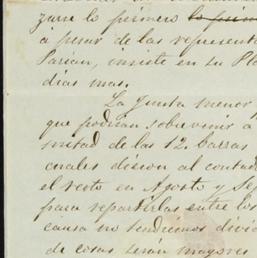 zure lo primero
á pesar de las represent
Parian, insiste en su Pl
dias mas.
La Junta menor
que podian sobrevenir á
mitad de las 12. barras
cuales dieron al contad
el resto en Agosto y Se
para repartirlas entre los
causa no tendremos divid
de cosas serán mayores